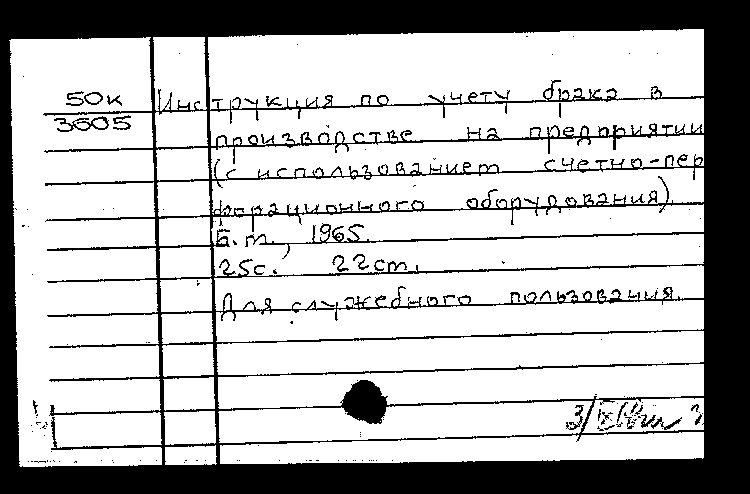 50к
3605
Инструкция по учету брака в
производстве на предприятии
(с использованием счетно-пер
форационного оборудования)
Б.м., 1965.
25с. 22см.
Для служебного пользования.